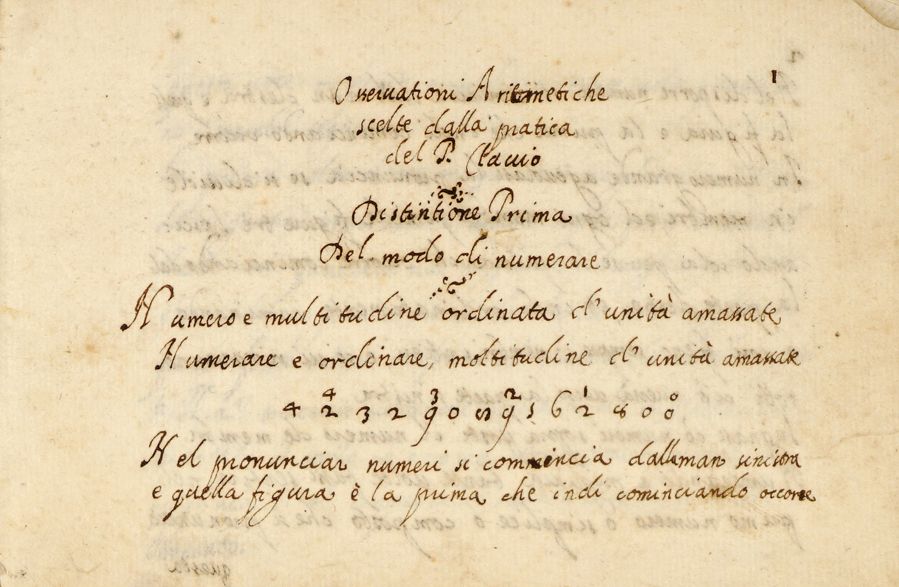 1
Osseruationi Aritmetiche
scelte dalla pratica
del P. Clauio
Distintione Prima
Del modo di numerare
Numero e multitudine ordinata d'unità amassate
Numerare e ordinare, moltitudine d'unità amassate
4 3 2 1 0
4 2 3 2 9 0 8 9 1 6 2 8 0 0
Nel pronunciar numeri si commincia dalla man sinistra
e quella figura è la prima che indi cominciando occorre